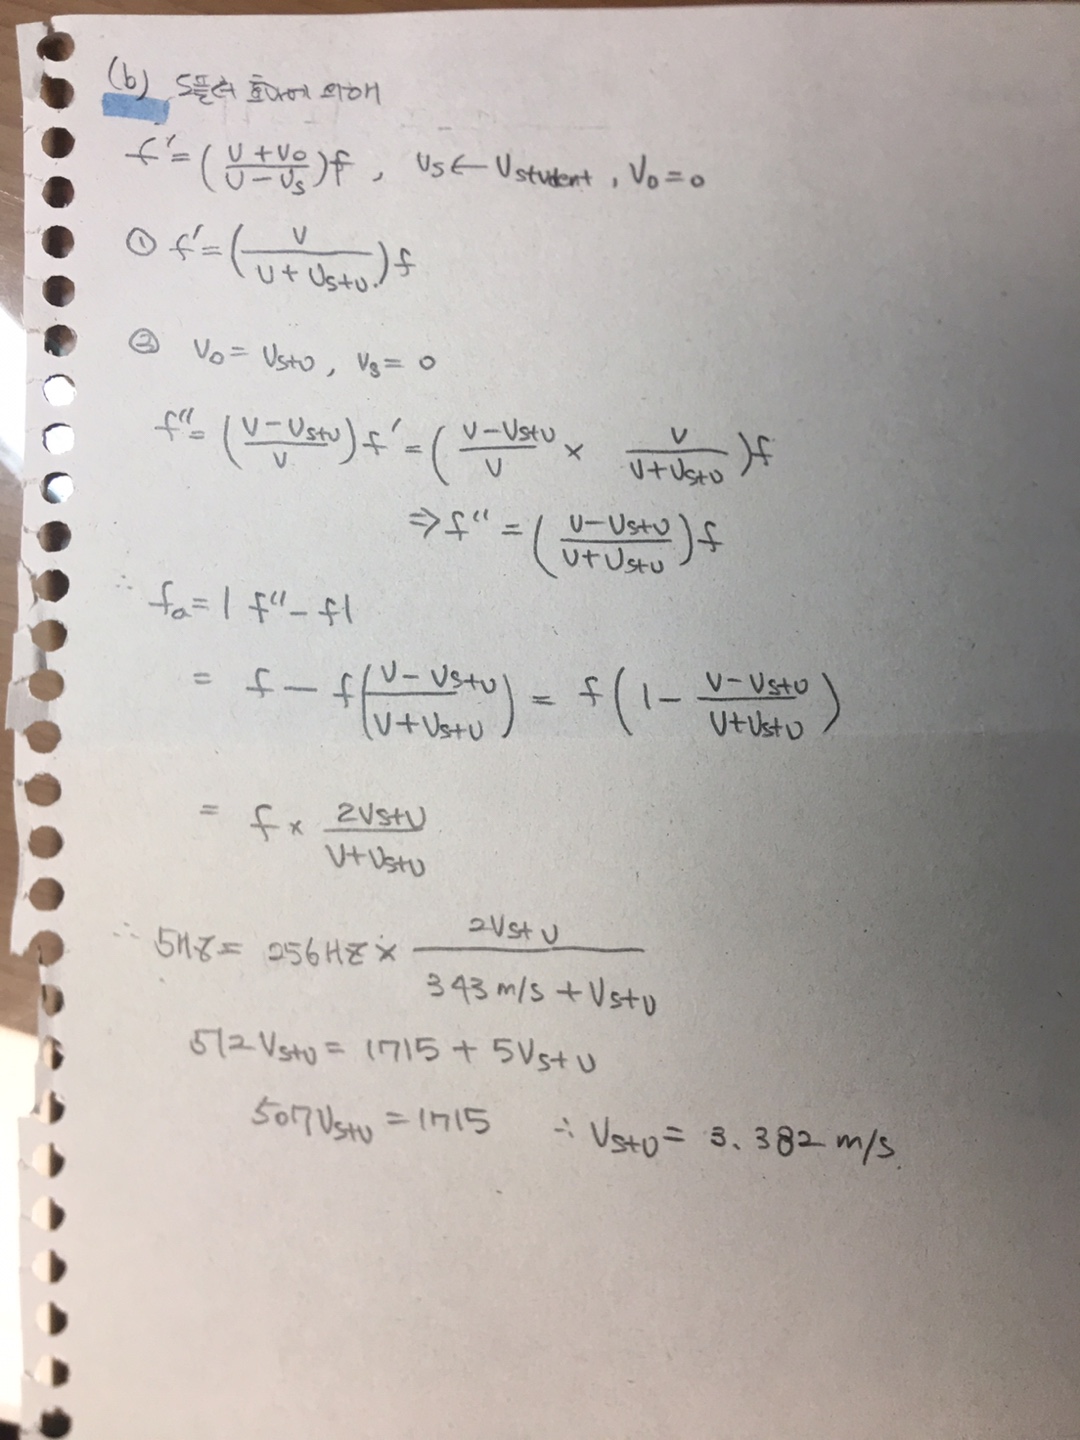 (b) 도플러 효과에 의해
f' = (v + v₀ / v − vₛ) f , vₛ ← v student , v₀ = 0
① f' = (v / v + v stu.) f
② v₀ = v stu , vₛ = 0
f'' = (v − v stu / v) f' = (v − v stu / v × v / v + v stu) f
⇒ f'' = (v − v stu / v + v stu) f
∴ fa = | f'' − f |
= f − f (v − v stu / v + v stu) = f (1 − v − v stu / v + v stu)
= f × 2v stu / v + v stu
∴ 5Hz = 256Hz × 2v stu / 343 m/s + v stu
512 v stu = 1715 + 5 v stu
507 v stu = 1715 ∴ v stu = 3.382 m/s.